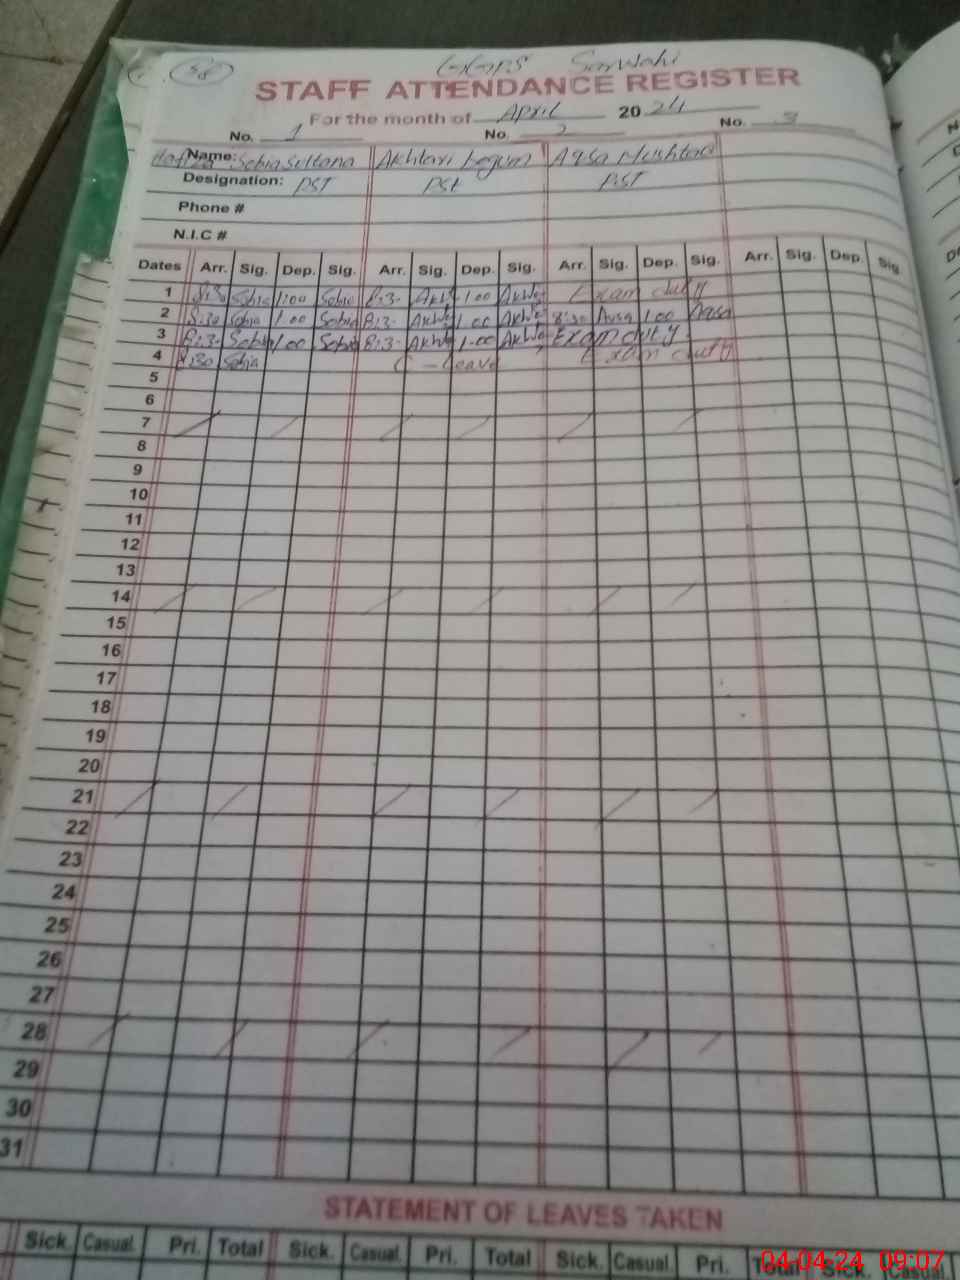 58
GGPS Sarwahi
STAFF ATTENDANCE REGISTER
For the month of April 2024
No. 1 No. 2 No. 3
Name: Sobia Sultana Akhtari begum Aqsa Mushtaq
Designation: PST PST PST
Phone #
N.I.C #
Dates Arr. Sig. Dep. Sig. Arr. Sig. Dep. Sig. Arr. Sig. Dep. Sig. Arr. Sig. Dep. Sig
1 8:30 Sobia 1:00 Sobia 8:3- 1.00 Exam duty
2 8:30 Sobia 1.00 Sobia 8:3- 1.00 8:30 Aqsa 1.00 Aqsa
3 8:3- Sobia 1.00 Sobia 8:3- 1.00 Exam duty
4 8:30 Sobia C - leave Exam duty
5
6
7
8
9
10
11
12
13
14
15
16
17
18
19
20
21
22
23
24
25
26
27
28
29
30
31
STATEMENT OF LEAVES TAKEN
Sick. Casual. Pri. Total Sick. Casual. Pri. Total Sick. Casual. Pri. Total Sick. Casual
04.04.24 09:07